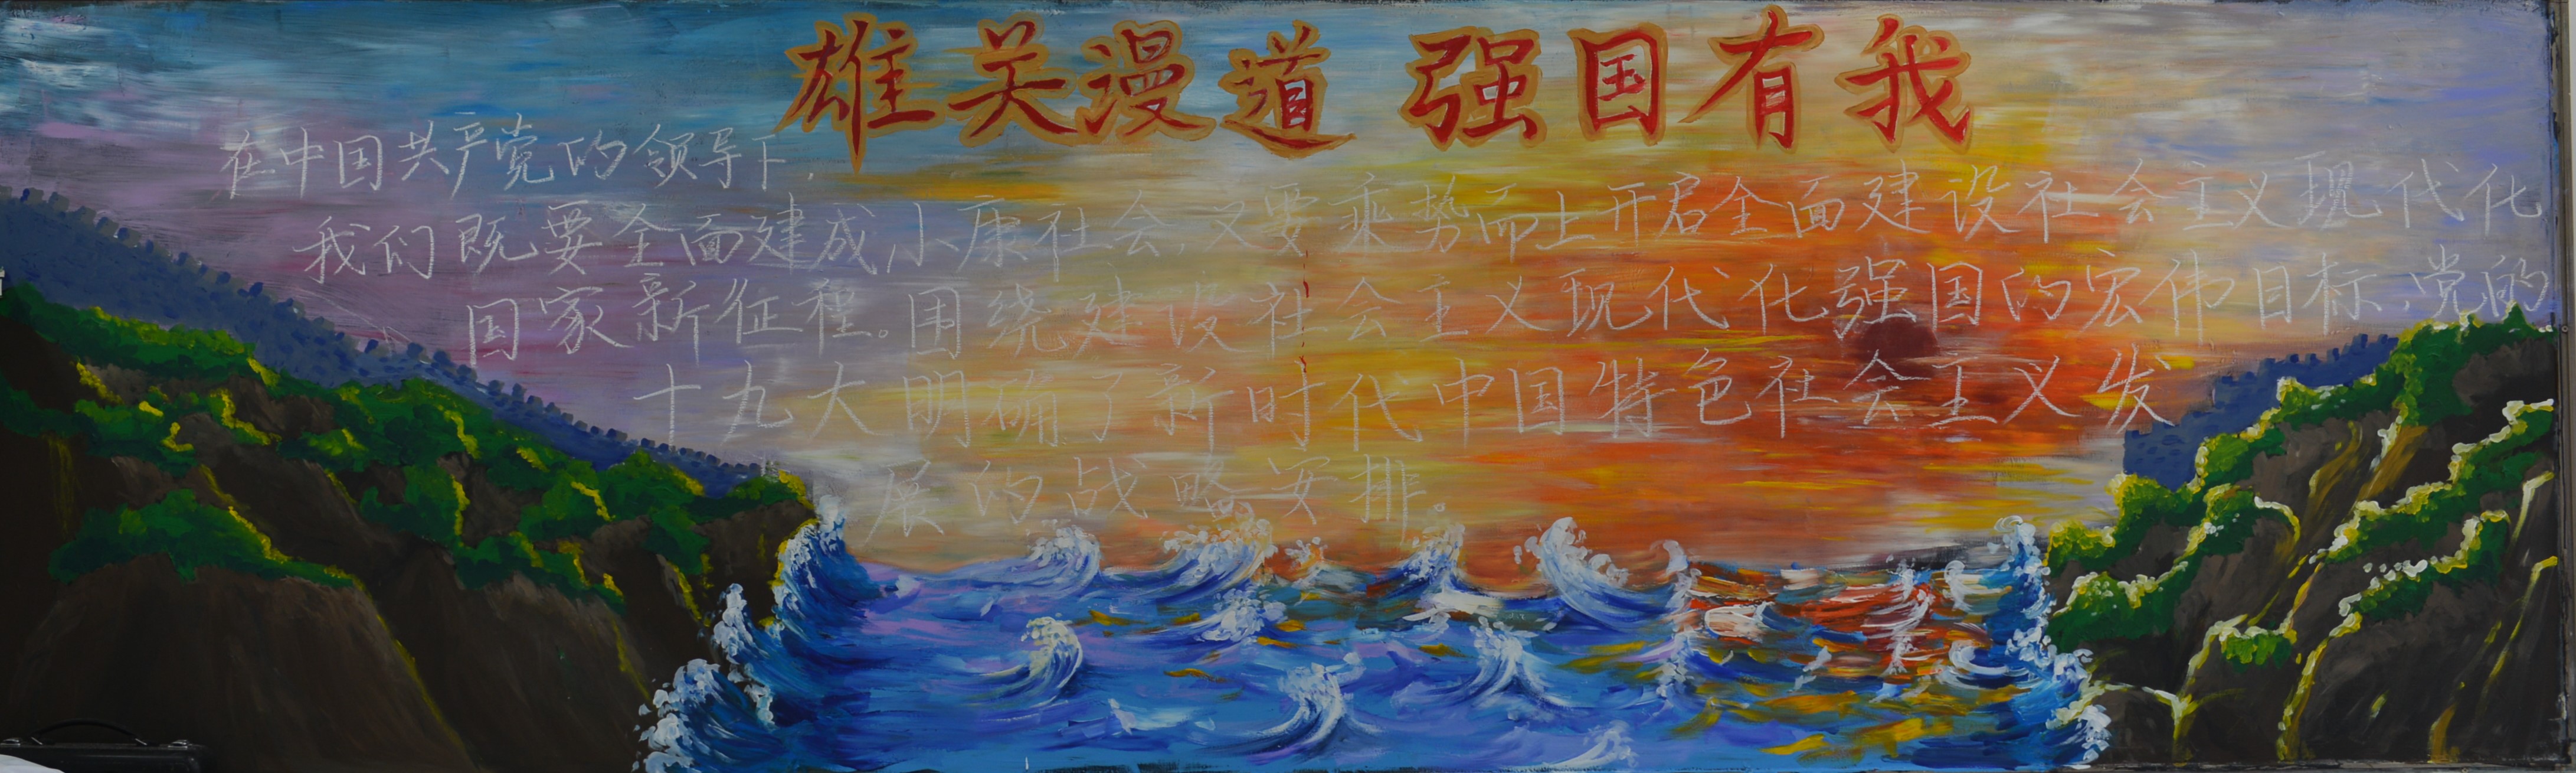 雄关漫道 强国有我
在中国共产党的领导下,
我们既要全面建成小康社会,又要乘势而上开启全面建设社会主义现代化
国家新征程。围绕建设社会主义现代化强国的宏伟目标,党的
十九大明确了新时代中国特色社会主义发
展的战略安排。